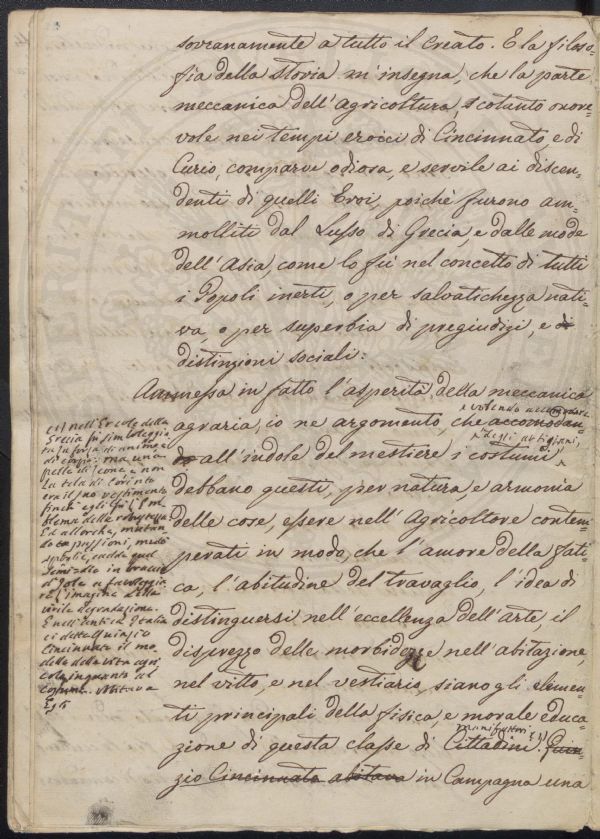 sovranamente a tutto il Creato. E la filoso-
fia della storia m'insegna, che la parte
meccanica dell'Agricoltura, cotanto onore-
vole nei tempi eroici di Cincinnato, e di
Curio, comparve odiosa, e servile ai discen-
denti di quelli Eroi, poichè furono am-
molliti dal Lusso di Grecia, e dalle mode
dell'Asia, come lo fù nel concetto di tutti
i Popoli inerti, o per salvatichezza nati-
va, o per superbia di pregiudizj, e di
distinzioni sociali:
Ammessa in fatto l'asperità della meccanica
volendo accomodare
agraria, io ne argomento che accomodan-
degli artigiani,
do all'indole del mestiere i costumi,
debbano questi, per natura e armonia
delle cose, essere nell'Agricoltore contem-
perati in modo, che l'amore della fati-
ca, l'abitudine del travaglio, l'idea di
distinguersi nell'eccellenza dell'arte, il
disprezzo delle morbidezze nell'abitazione,
nel vitto, e nel vestiario, siano gli elemen-
ti principali della fisica, e morale educa-
manifattori
zione di questa classe di Cittadini. Quin-
zio Cincinnato abitava in Campagna una
nell'Ercole della
Grecia fu simboleggia-
ta la forza di animo e
di corpo: ma una
pelle di Leone e non
la tela di Corinto
era il suo vestimento
finch' egli fù l'Em-
blema della robustezza
Ed allorchè, mutan-
do
cadde quel
Semidio in braccio
di Jole a
l'imagine della
virile degradazione.
E nell'antica Italia
ci dette Quinzio
Cincinnato il mo-
dello della vita agri-
cola inquanto al
costume. Abitava
Egli